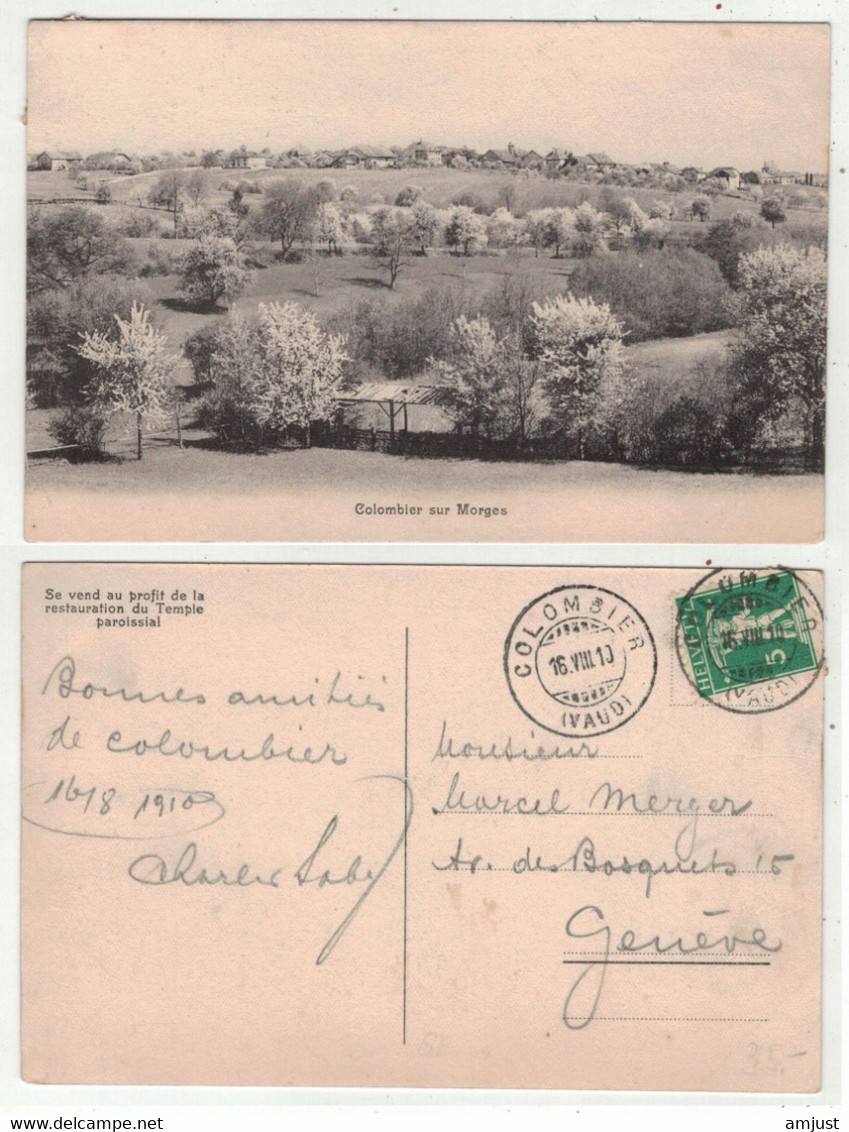 Colombier sur Morges
Se vend au profit de la
restauration du Temple
paroissial
Bonnes amitiés
de colombier
16/8 1910
Charles
COLOMBIER
16.VIII.10
(VAUD)
HELVETIA
5
COLOMBIER
16.VIII.10
(VAUD)
Monsieur
Marcel Merger
Av. des Bosquets 15
Genève
35.-
www.delcampe.net
amjust